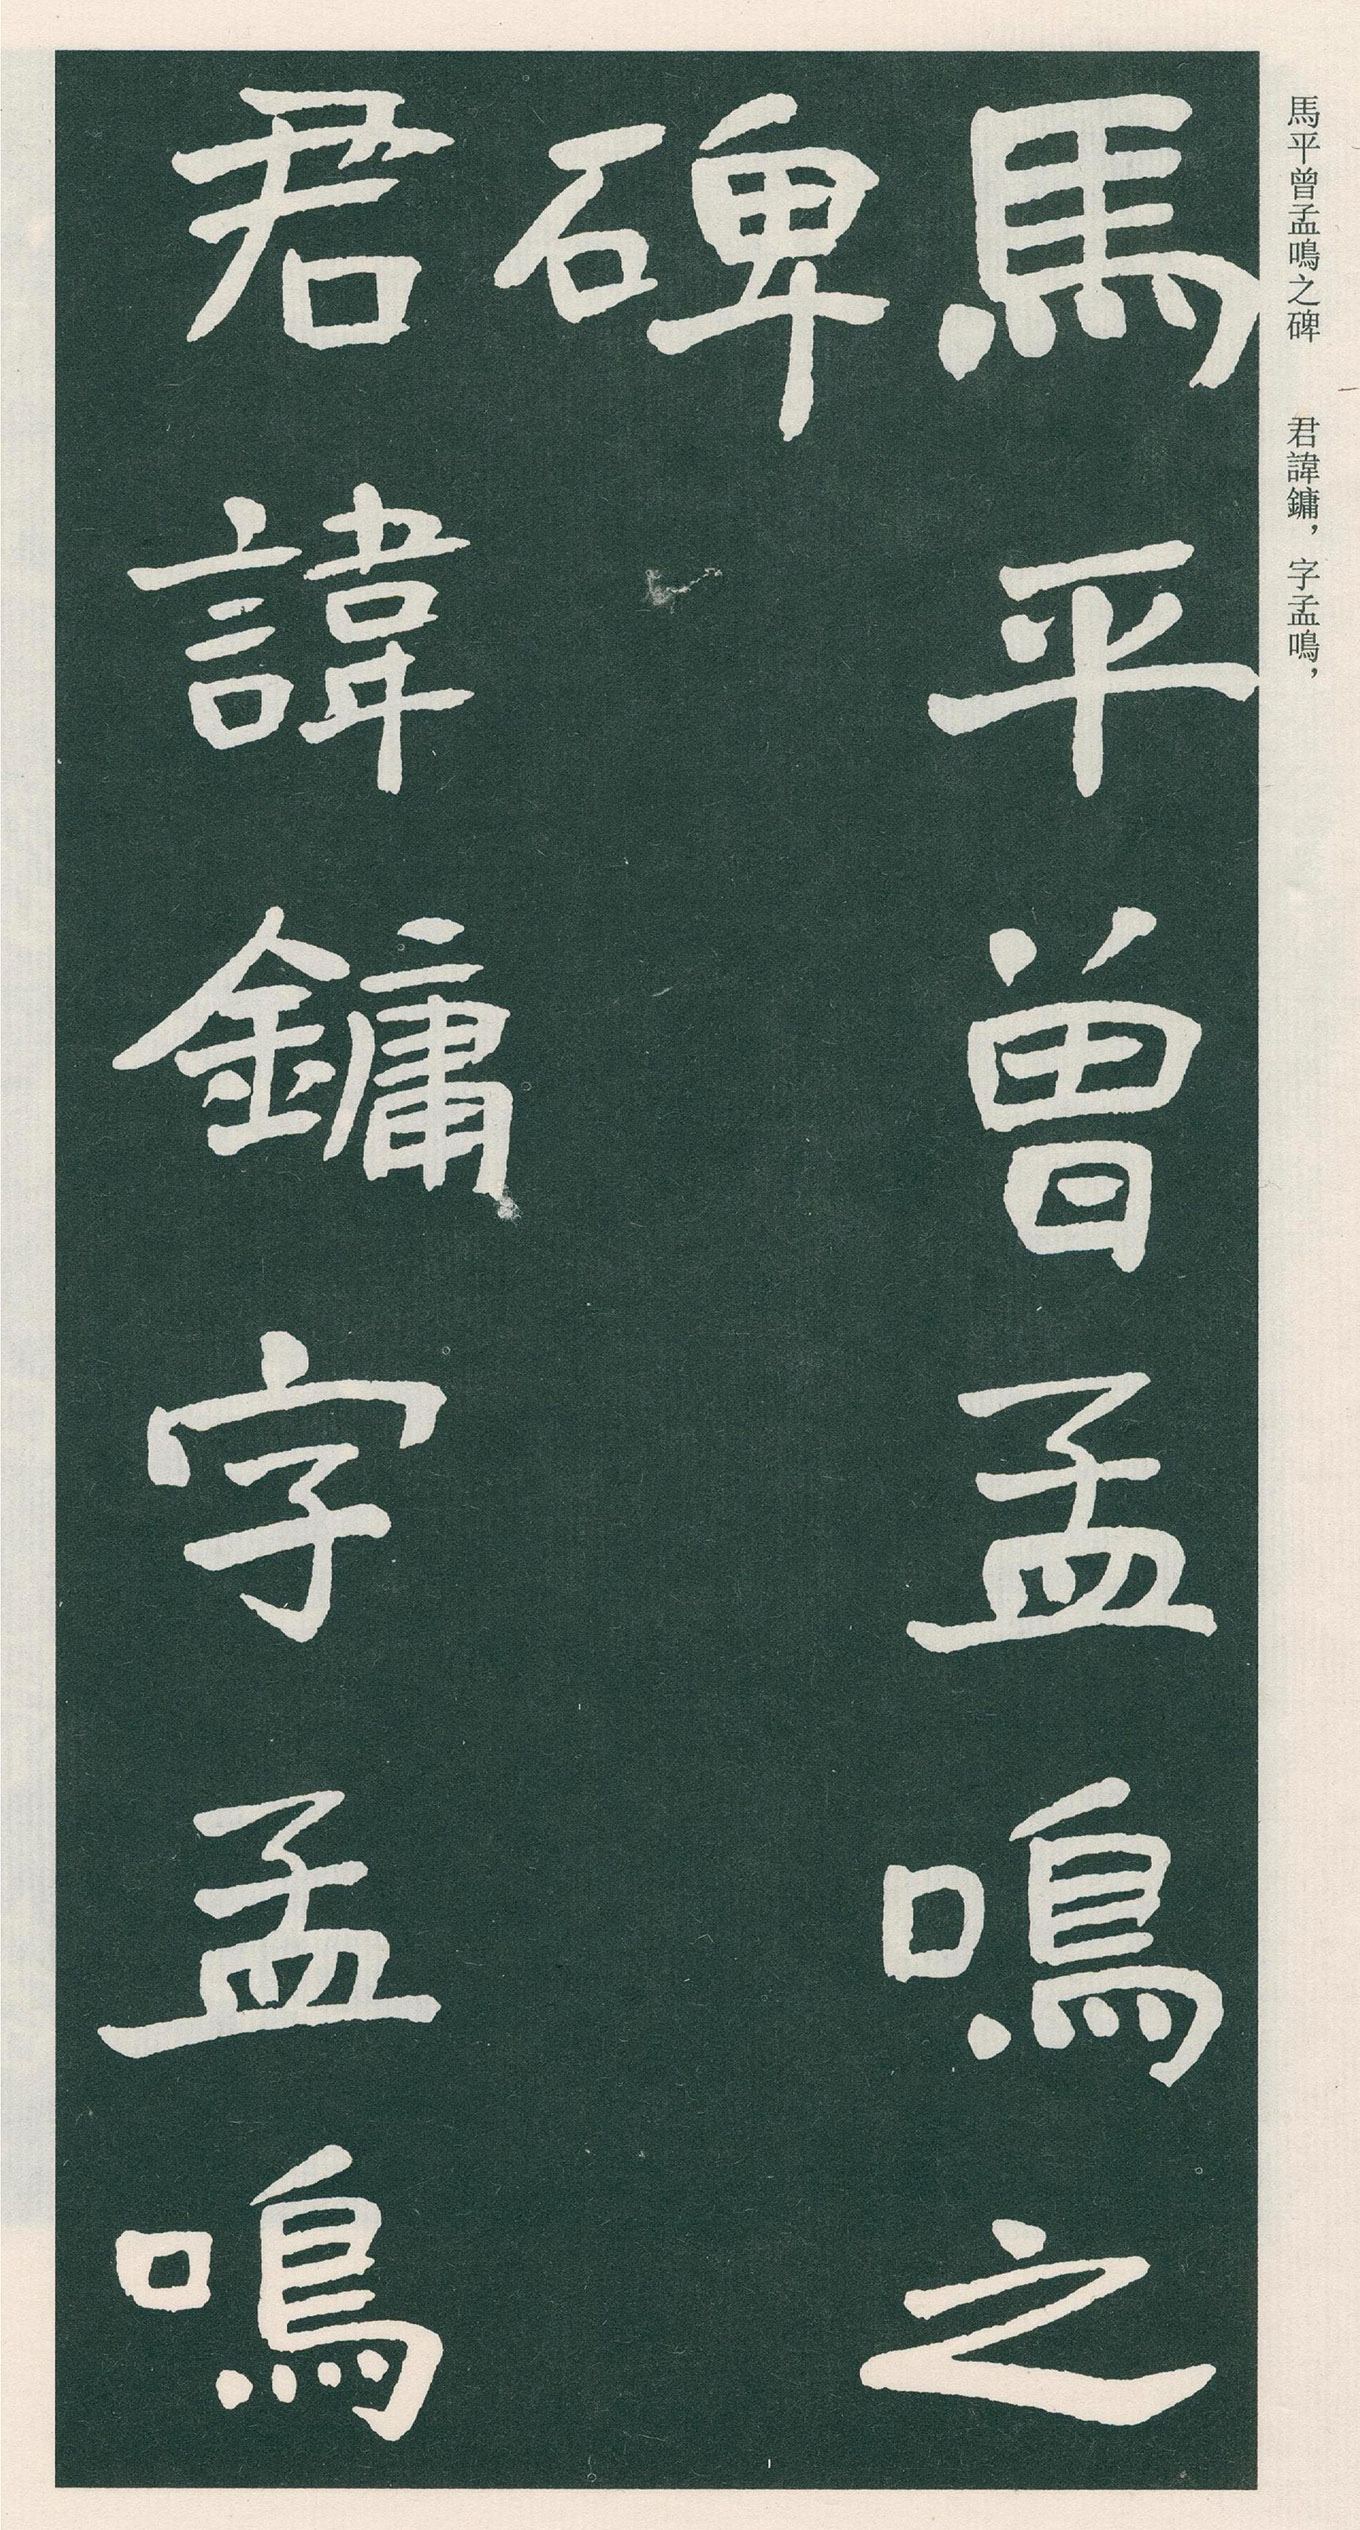 馬平曾孟鳴之碑　君諱鏞，字孟鳴，
馬平曾孟鳴之
碑
君諱鏞字孟鳴